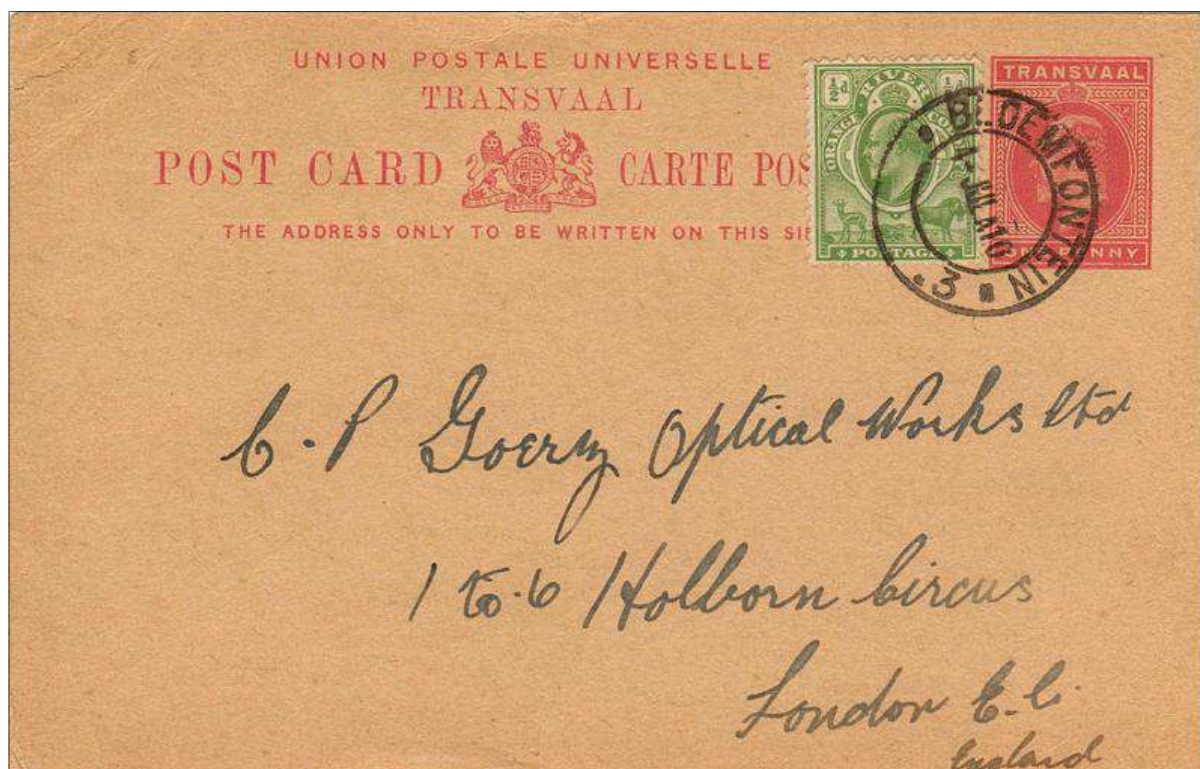 UNION POSTALE UNIVERSELLE
TRANSVAAL
POST CARD CARTE POS
THE ADDRESS ONLY TO BE WRITTEN ON THIS SI
½d ½d
ORANGE RIVER CO
POSTAGE
TRANSVAAL
ONE PENNY
BLOEMFONTEIN
JUL 10
3
C. P Goerz Optical Works Ltd
1 to 6 Holborn Circus
London E.C.
England